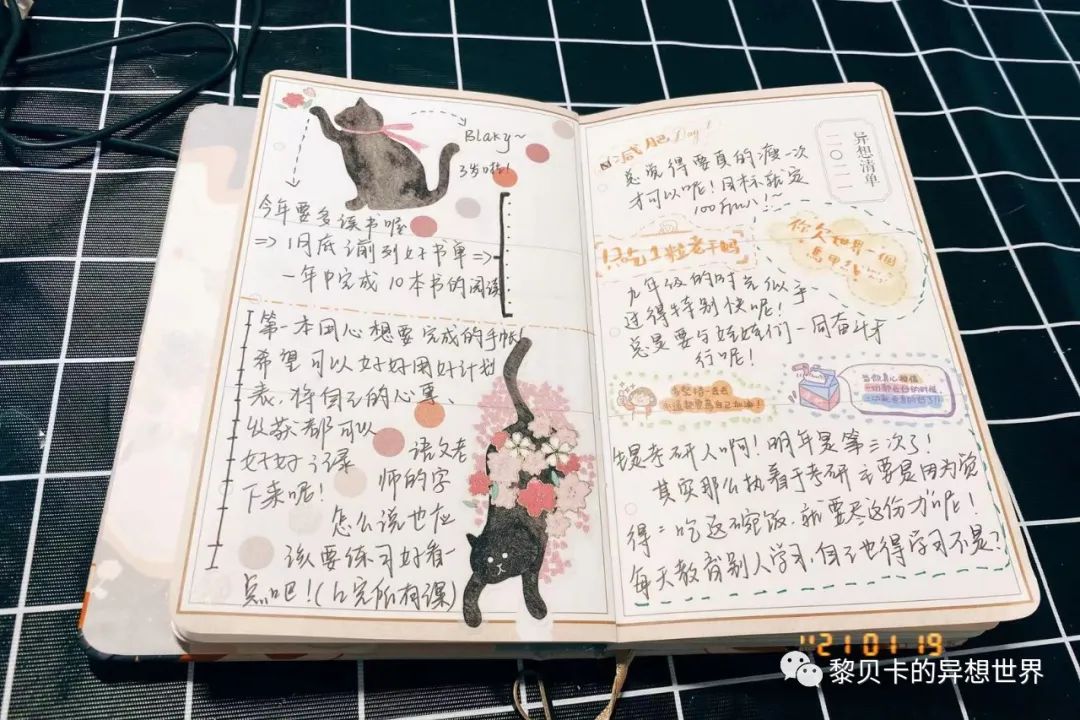 Blaky~
3岁啦!
今年要多读书呢
=> 1月底前列好书单 =>
一年中完成10本书的阅读
第一本用心想要完成的手帐!
希望可以好好用好计划
表、将自己的心要、
收获都可以
好好记录
下来呢!
语文老
师的字
怎么说也应
该要练习好看一
点吧!(上完所有课)
异想清单
二〇二一
减肥 Day 1
总觉得要真的瘦一次
才可以呢!目标就定
100斤以!~
你欠世界一個
馬甲线
只吃1粒老干妈
九年级的时光似乎
过得特别快呢!
总是要与娃娃们一同奋斗
行呢!
当你真心相信
先是考研人啊!明年是第三次了!
其实那么执着于考研主要是因为觉
得:吃这碗饭,就要尽这份力呢!
每天教育别人学习,自己也得学习不是?
21 01 19
黎贝卡的异想世界